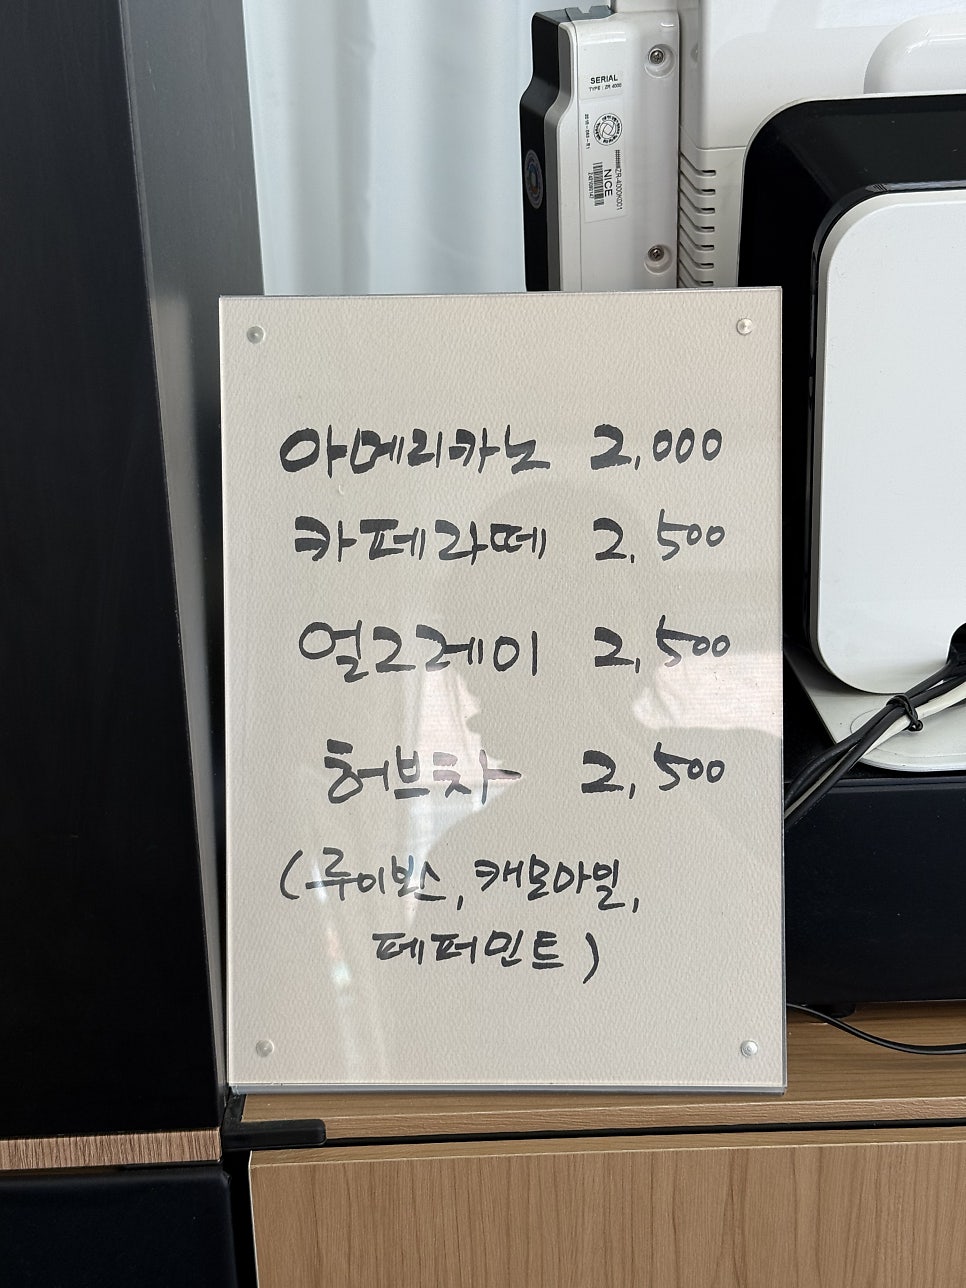 SERIAL
TYPE : ZR 4000
NICE
아메리카노 2,000
카페라떼 2,500
얼그레이 2,500
허브차 2,500
(루이보스, 캐모마일,
페퍼민트)